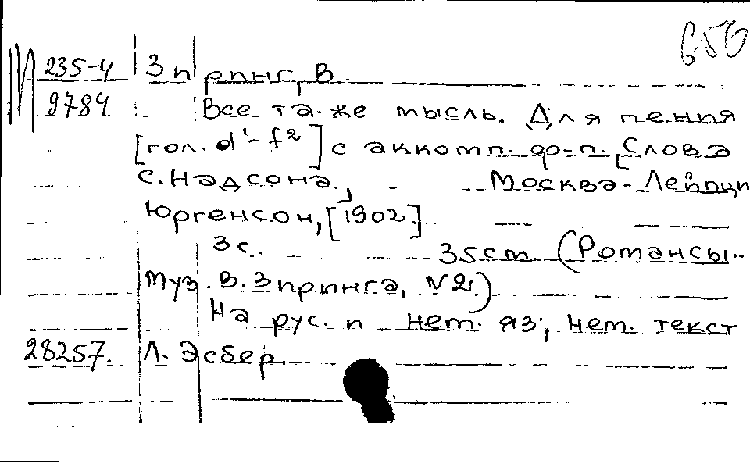 656
М 235-4 Эпринг, В.
9784 Все та же мысль. Для пения
[гол. d¹-f²] с аккомп. ф-п. Слова
С. Надсона. Москва-Лейпциг
Юргенсон, [1902]
3 с. 35 cm (Романсы.
Муз. В. Эпринга, №2.)
На рус. и нем. яз; нем. текст
28257. Л. Эсбер